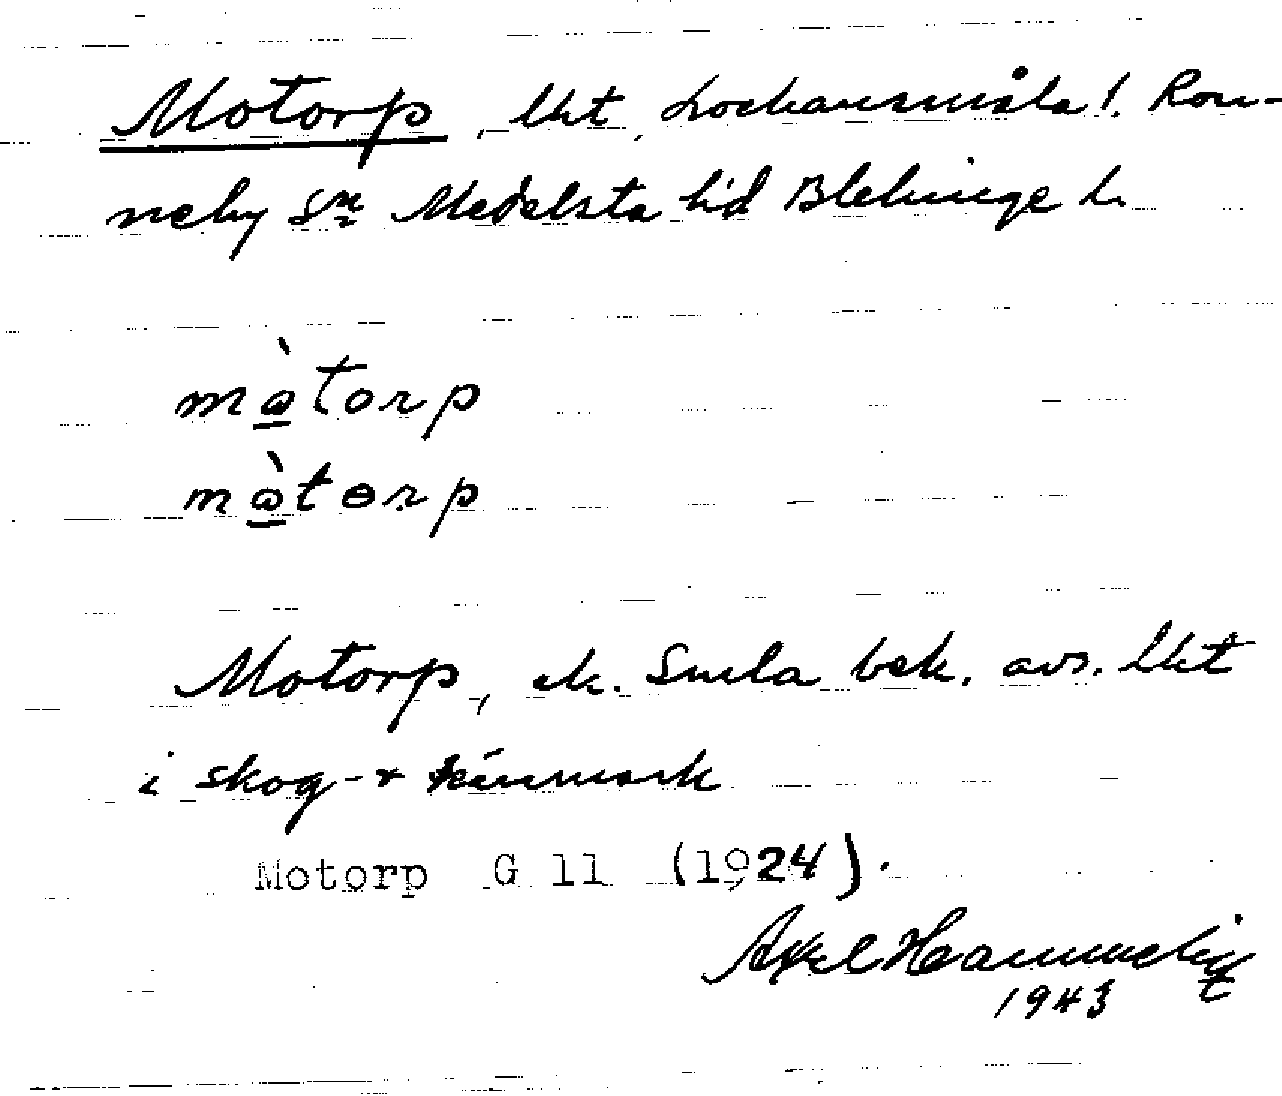 Motorp, lht, Lockansmåla! Ron-
neby sn Medelsta hd Blekinge l.
mò̱torp
mò̱tɵrp
Motorp, ek. Smla bek. avs. lht
i skog- & kärrmark
Motorp G 11 (1924).
Axel Hamm
1943